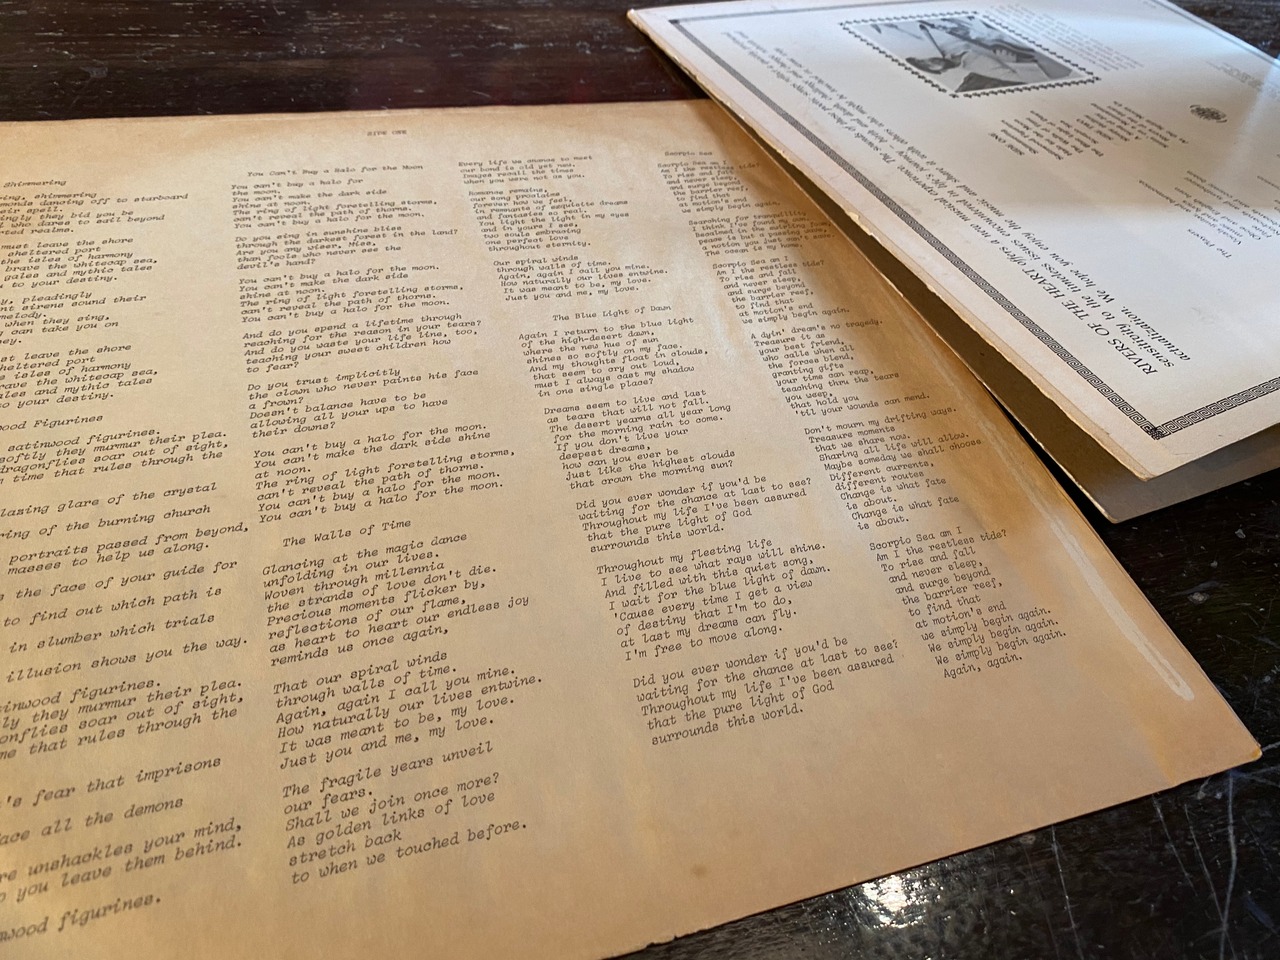 SIDE ONE
Shimmering
shimmering
dancing off to starboard
their spell.
they bid you be
who dares to sail beyond
realms.
must leave the shore
sheltered port
the isles of harmony
brave the whitecap sea,
gales and mythic tales
to your destiny.
pleadingly
sirens sound their
melody.
when they sing,
can take you on
leave the shore
sheltered port
isles of harmony
brave the whitecap sea,
and mythic tales
your destiny.
Figurines
satinwood figurines.
softly they murmur their plea.
dragonflies soar out of sight,
time that rules through the
glare of the crystal
ring of the burning church
portraits passed from beyond,
masses to help us along.
the face of your guide for
to find out which path is
in slumber which trials
illusion shows you the way.
figurines.
they murmur their plea.
soar out of sight,
that rules through the
fear that imprisons
all the demons
unshackles your mind,
you leave them behind.
figurines.
You Can't Buy a Halo for the Moon
You can't buy a halo for
the moon.
You can't make the dark side
shine at noon.
The ring of light foretelling storms,
can't reveal the path of thorns.
You can't buy a halo for the moon.
Do you sing in sunshine bliss
through the darkest forest in the land?
Are you any wiser, Miss,
than fools who never see the
devil's hand?
You can't buy a halo for the moon.
You can't make the dark side
shine at noon.
The ring of light foretelling storms,
can't reveal the path of thorns.
You can't buy a halo for the moon.
And do you spend a lifetime through
reaching for the reason in your tears?
And do you waste your life line, too,
teaching your sweet children how
to fear?
Do you trust implicitly
the clown who never paints his face
a frown?
Doesn't balance have to be
allowing all your ups to have
their downs?
You can't buy a halo for the moon.
You can't make the dark side shine
at noon.
The ring of light foretelling storms,
can't reveal the path of thorns.
You can't buy a halo for the moon.
You can't buy a halo for the moon.
The Walls of Time
Glancing at the magic dance
unfolding in our lives.
Woven through millennia
the strands of love don't die.
Precious moments flicker by,
reflections of our flame,
as heart to heart our endless joy
reminds us once again,
That our spiral winds
through walls of time.
Again, again I call you mine.
How naturally our lives entwine.
It was meant to be, my love.
Just you and me, my love.
The fragile years unveil
our fears.
Shall we join once more?
As golden links of love
stretch back
to when we touched before.
Every life we chance to meet
our bond is old yet new.
Images recall the times
when you were not as you.
Romance remains,
our song proclaims
forever how we feel,
in moments of exquisite dreams
and fantasies so real.
You light the light in my eyes
and in yours I see,
two souls embracing
one perfect love
throughout eternity.
Our spiral winds
through walls of time.
Again, again I call you mine.
How naturally our lives entwine.
It was meant to be, my love.
Just you and me, my love.
The Blue Light of Dawn
Again I return to the blue light
of the high-desert dawn,
where the new hue of sun
shines so softly on my face.
And my thoughts float in clouds,
that seem to cry out loud,
must I always cast my shadow
in one single place?
Dreams seem to live and last
as tears that will not fall.
The desert yearns all year long
for the morning rain to come.
If you don't live your
deepest dreams,
how can you ever be
Just like the highest clouds
that crown the morning sun?
Did you ever wonder if you'd be
waiting for the chance at last to see?
Throughout my life I've been assured
that the pure light of God
surrounds this world.
Throughout my fleeting life
I live to see what rays will shine.
And filled with this quiet song,
I wait for the blue light of dawn.
'Cause every time I get a view
of destiny that I'm to do,
at last my dreams can fly.
I'm free to move along.
Did you ever wonder if you'd be
waiting for the chance at last to see?
Throughout my life I've been assured
that the pure light of God
surrounds this world.
Scorpio Sea
Scorpio Sea am I
Am I the restless tide?
To rise and fall
and never sleep,
and surge beyond
the barrier reef,
to find that
at motion's end
we simply begin again.
Searching for tranquility
I think I've found my
Becalmed in the
peace is but a passing
a notion you just can't
The ocean is my home.
Scorpio Sea am I
Am I the restless tide?
To rise and fall
and never sleep,
and surge beyond
the barrier reef,
to find that
at motion's end
we simply begin again.
A dyin' dream's no tragedy.
Treasure it as
your best friend,
who calls when all
the forces blend,
granting gifts
your time can reap,
teaching thru the tears
you weep,
that hold you
'til your wounds can mend.
Don't mourn my drifting ways.
Treasure moments
that we share now.
Sharing all life will allow.
Maybe someday we shall choose
Different currents,
different routes
Change is what fate
is about.
Change is what fate
is about.
Scorpio Sea am I
Am I the restless tide?
To rise and fall
and never sleep,
and surge beyond
the barrier reef,
to find that
at motion's end
we simply begin again.
We simply begin again.
We simply begin again.
Again, again.
RIVERS OF THE HEART offers a new musical experience. The sounds of these
sensitivity to the timeless issues encountered in life's journey
actualization
We hope you enjoy the music
SIDE ONE
The Players